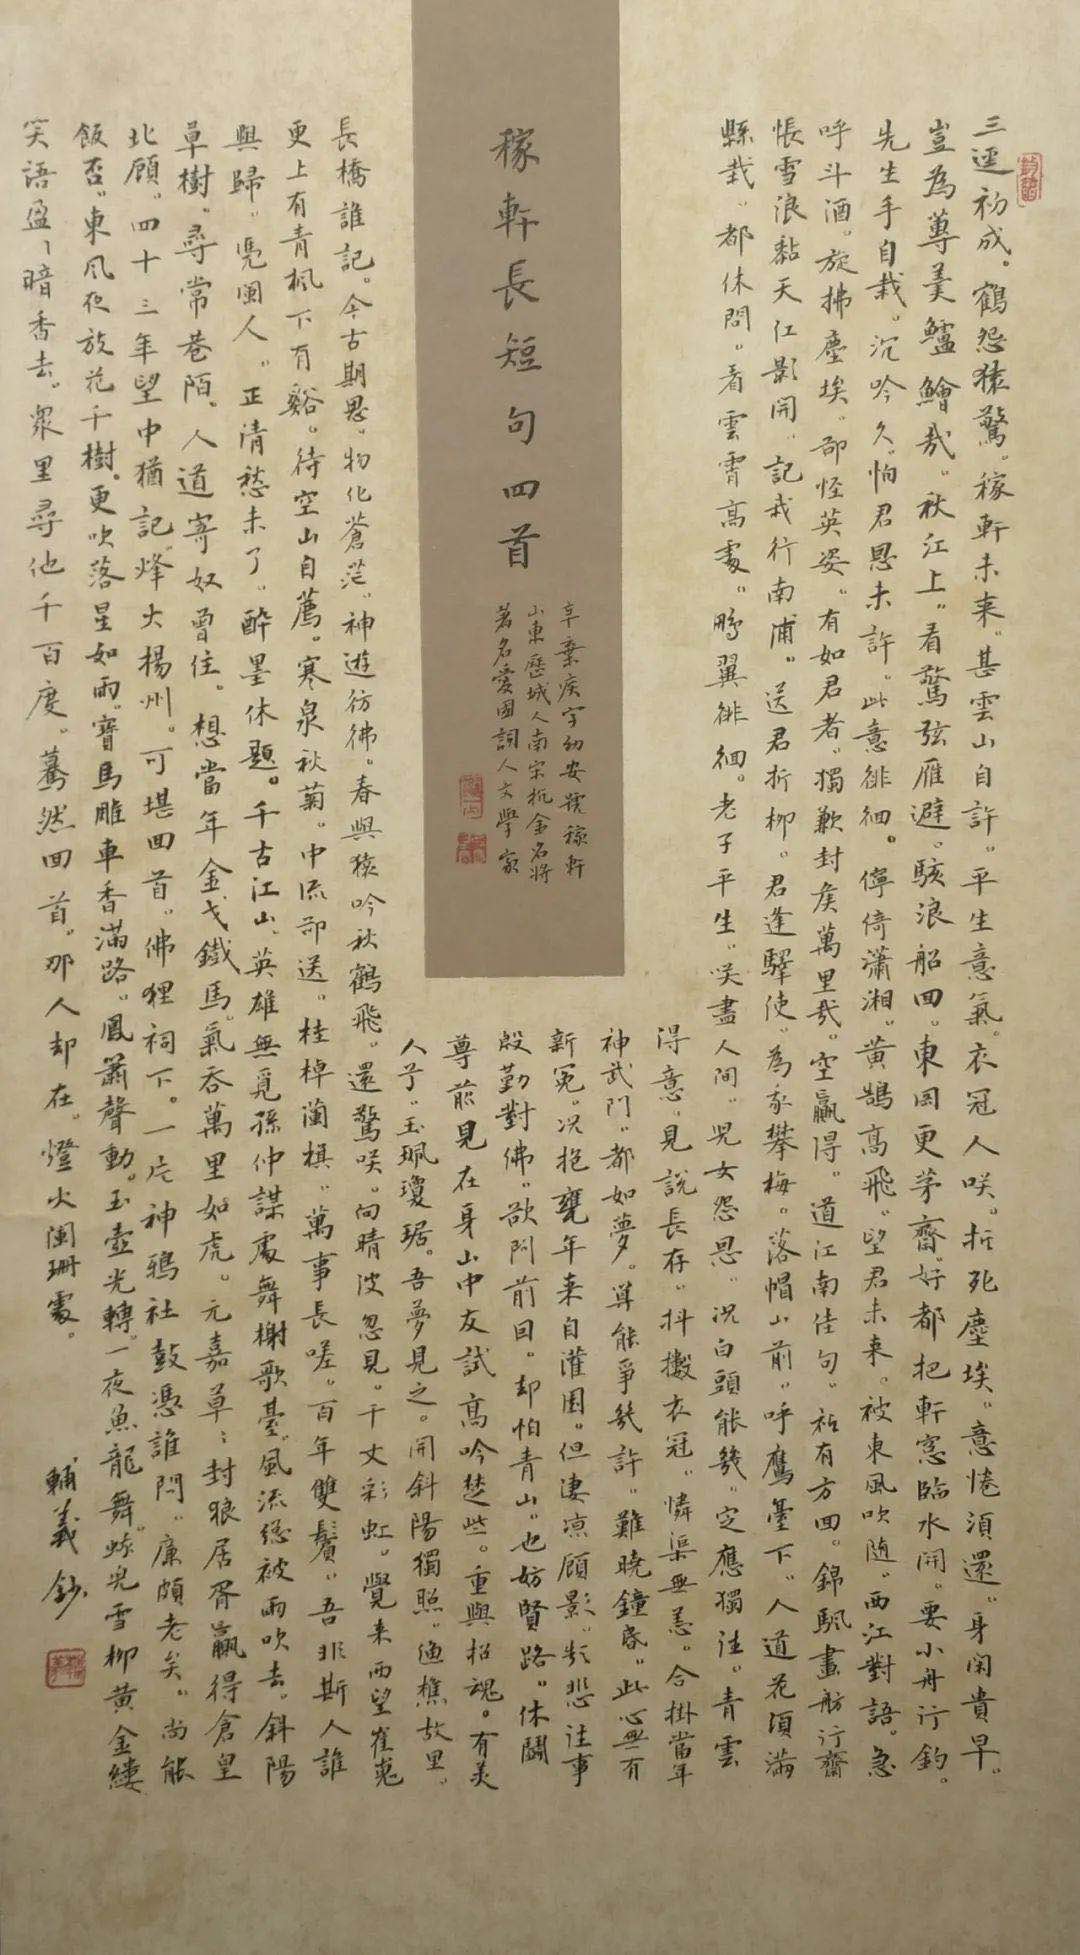 三逕初成。鶴怨猿驚。稼軒未来。甚雲山自許。平生意氣。衣冠人咲。抵死塵埃。意倦須還。身閑貴早。
豈為蓴羹鱸鱠哉。秋江上。看驚弦雁避。駭浪船回。東岡更茅齋。好都把軒窓臨水開。要小舟行釣。
先生手自栽。沉吟久。怕君恩未許。此意徘徊。儜倚瀟湘。黄鵠高飛。望君未来。被東風吹随。西江對語。急
呼斗酒。旋拂塵埃。却怪英姿。有如君者。獨歉封侯萬里哉。空贏得。道江南佳句。祗有方回。錦帆畫舫行齋
悵雪浪黏天江影開。記我行南浦。送君折柳。君逢驛使。為我攀梅。落帽山前。呼鷹臺下。人道花須滿
縣栽。都休問。看雲霄高處。鵬翼徘徊。老子平生。咲盡人間。兒女怨恩。況白頭能幾。定應獨往。青雲
得意。見說長存。抖擻衣冠。憐渠無恙。合掛當年
神武門。都如夢。算能爭幾許。雞曉鐘昏。此心無有
新冤。况抱甕年来自灌園。但凄凉顧影。頻悲往事
殷勤對佛。欲問前因。却怕青山。也妨賢路。休鬭
尊前見在身山中友試高吟楚些。重與招魂。有美
人兮。玉珮瓊琚。吾夢見之。問斜陽獨照。漁樵故里。
稼軒長短句四首
辛棄疾字幼安號稼軒
山東歷城人南宋抗金名將
著名愛國詞人文學家
長橋誰記。今古期思。物化蒼茫。神遊彷彿。春與猿吟秋鶴飛。還驚咲。向晴波忽見。千丈彩虹。覺来西望崔嵬
更上有青楓下有谿。待空山自薦。寒泉秋菊。中流却送。桂棹蘭旗。萬事長嗟。百年雙鬢。吾非斯人誰
與歸。凭闌人。正清愁未了。醉墨休題。千古江山。英雄無覓孫仲謀處舞榭歌臺。風流總被雨吹去。斜陽
草樹。尋常巷陌。人道寄奴曾住。想當年金戈鐵馬。氣吞萬里如虎。元嘉草〻封狼居胥贏得倉皇
北顧。四十三年望中猶記。烽火揚州。可堪回首。佛狸祠下。一片神鴉社鼓憑誰問。廉頗老矣。尚能
飯否。東風夜放花千樹。更吹落星如雨。寶馬雕車香滿路。鳳簫聲動。玉壺光轉。一夜魚龍舞。蛾兒雪柳黄金縷
笑語盈〻暗香去。衆里尋他千百度。驀然回首。那人却在。燈火闌珊處。
輔義鈔